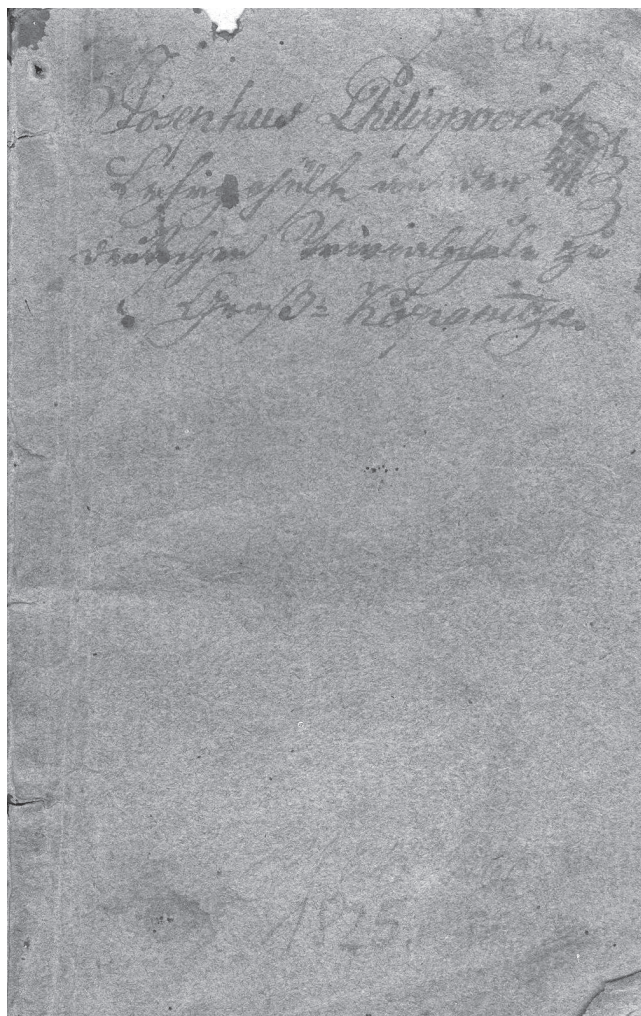 Josephus Philippovich
Lehrgehülf an der
deutschen Trivialschule zu
Groß=
1825.